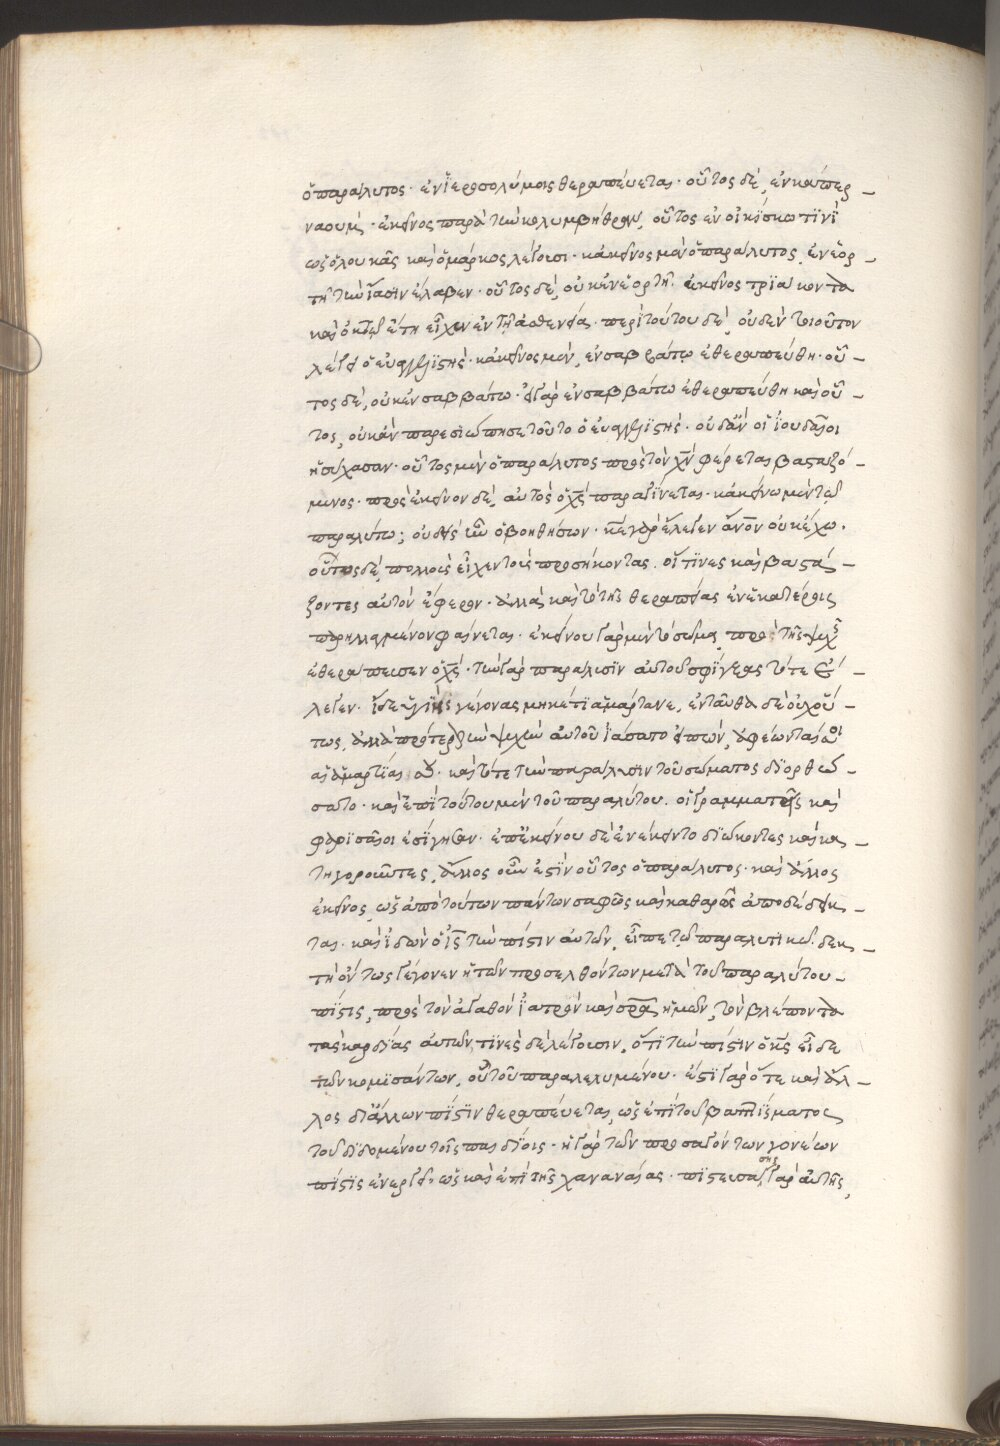 ὁ παράλυτος· ἐν ἱεροσολύμοις θεραπεύεται· οὗτος δὲ, ἐν καπερ–
ναούμ· ἐκεῖνος παρὰ τὴν κολυμβήθραν, οὗτος ἐν οἰκίσκω τινὶ
ὡς ὁ λουκᾶς καὶ ὁ μάρκος λέγουσι· κἀκεῖνος μὲν ὁ παράλυτος, ἐν ἑορ–
τῇ τὴν ἴασιν ἔλαβεν· οὗτος δὲ, οὐκ ἐν ἑορτῇ· ἐκεῖνος τριάκοντα
καὶ ὀκτὼ ἔτη εἶχεν ἐν τῇ ἀσθενεία· περὶ τούτου δὲ, οὐδὲν τοιοῦτον
λέγει ὁ εὐαγγελιστής· κἀκεῖνος μὲν, ἐν σαββάτω ἐθεραπεύθη· οὗ–
τος δὲ, οὐκ ἐν σαββάτω· εἰ γὰρ ἐν σαββάτω ἐθεραπεύθη καὶ οὗ–
τος, οὐκ ἂν παρεσιώπησε τοῦτο ὁ εὐαγγελιστής· οὐδ' ἂν οἱ ἰουδαῖοι
ἡσύχασαν· οὗτος μὲν ὁ παράλυτος πρὸς τὸν χν φέρεται βασταζό–
μενος· πρὸς ἐκεῖνον δὲ, αὐτὸς ὁ χς παραγίνεται· κἀκείνω μὲν τῶ
παραλύτω; οὐδεὶς ἦν ὁ βοηθήσων· κε γὰρ ἔλεγεν ἄνον οὐκ ἔχω·
οὗτος δὲ, πολλοὺς εἶχεν τοὺς προσήκοντας. οἵτινες καὶ βαστά–
ζοντες αὐτὸν ἔφερον· ἀλλὰ καὶ τὸ τῆς θεραπείας ἐν ἑκατέροις
παρηλλαγμένον φαίνεται· ἐκείνου γὰρ μὲν τὸ σῶμα, πρὸ τῆς ψυχῆς
ἐθεράπευσεν ὁ χς· τὴν γὰρ παράλυσιν αὐτοῦ σφίγξας τότε ἔ–
λεγεν· ἴδε ὑγιὴς γέγονας μηκέτι ἁμάρτανε, ἐνταῦθα δὲ οὐχ οὕ–
τως, ἀλλὰ πρότερον τὴν ψυχὴν αὐτοῦ ἰάσατο εἰπὼν, ἀφέωνταί σοι
αἱ ἁμαρτίαι σου· καὶ τότε τὴν παράλυσιν τοῦ σώματος διορθώ–
σατο· καὶ ἐπὶ τούτου μὲν τοῦ παραλύτου. οἱ γραμματεῖς καὶ
φαρισαῖοι ἐσίγησαν· ἐπ' ἐκείνου δὲ ἐνέκειντο διώκοντες καὶ κα–
τηγοροῦντες, ἄλλος οὖν ἐστὶν οὗτος ὁ παράλυτος· καὶ ἄλλος
ἐκεῖνος, ὡς ἀπὸ τούτων πάντων σαφῶς καὶ καθαρῶς ἀποδέδεικ–
ται· καὶ ἰδὼν ὁ ις τὴν πίστιν αὐτῶν, εἶπε τῶ παραλυτικῶ. δεκ–
τὴ ὄντως γέγονεν ἡ τῶν προσελθόντων μετὰ τοῦ παραλύτου–
πίστις, πρὸς τὸν ἀγαθὸν ἰατρὸν καὶ σρα ἡμῶν, τὸν βλέποντα
τὰς καρδίας αὐτῶν, τινὲς δὲ λέγουσιν, ὅτι τὴν πίστιν ὁ κς εἶδε
τῶν κομισάντων, οὐ τοῦ παραλελυμένου· ἔστι γὰρ ὅτε καὶ ἄλ–
λος δι' ἄλλων πίστιν θεραπεύεται, ὡς ἐπὶ τοῦ βαπτίσματος
τοῦ διδομένου τοῖς παιδίοις· ἡ γὰρ τῶν προσαγόντων γονέων
πίστις ἐνεργεῖ· ὡς καὶ ἐπὶ τῆς χαναναίας· πιστευσάσης γὰρ αὐτῆς,